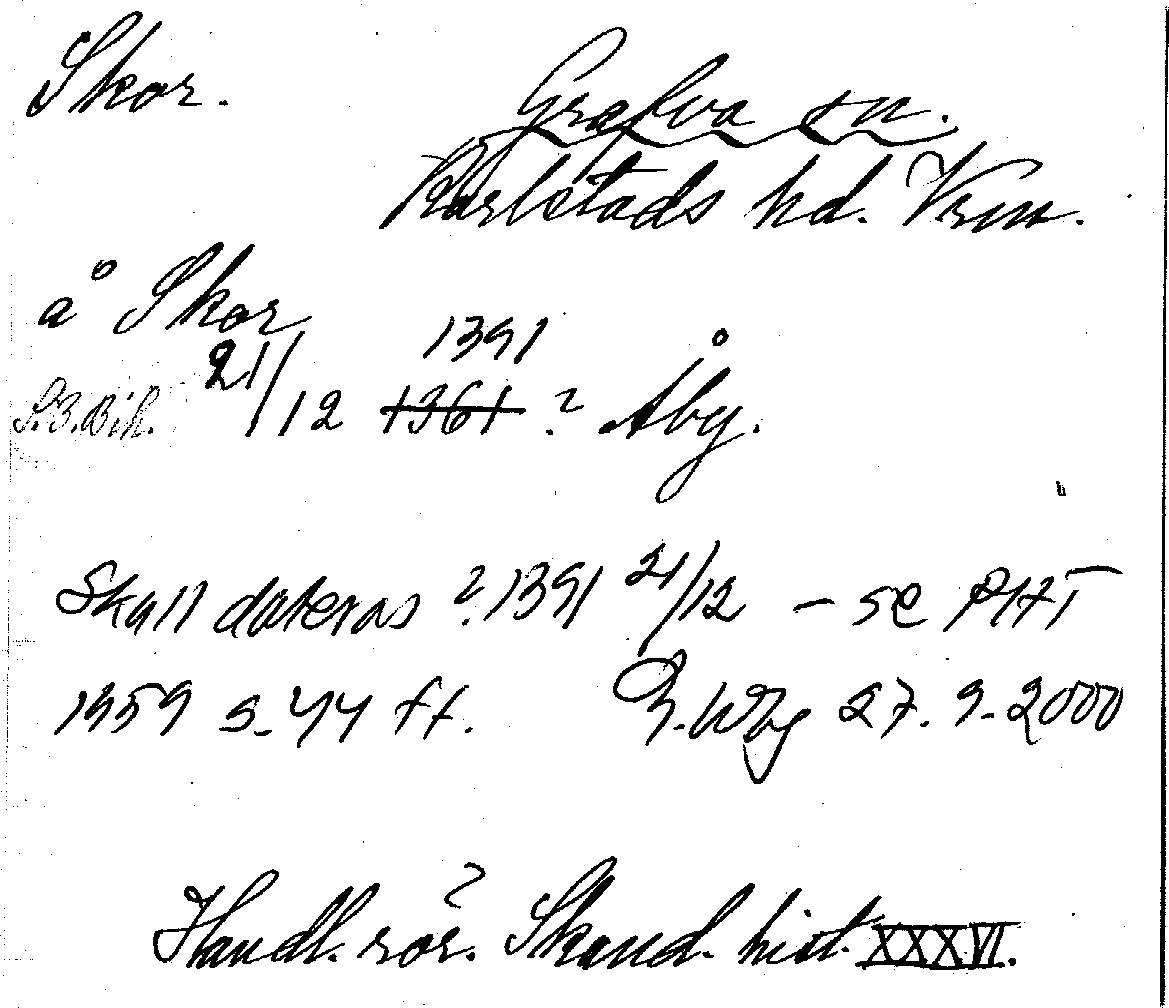 Skor.
Grafva sn.
Karlstads hd. Vrm.
å Skor
1391
21/12 1361 ? Åby.
Skall dateras ? 1391 21/12 – se PHT
1959 s. 44 ff. 27.9.2000
Handl. rör. Skand. hist. XXXVI.